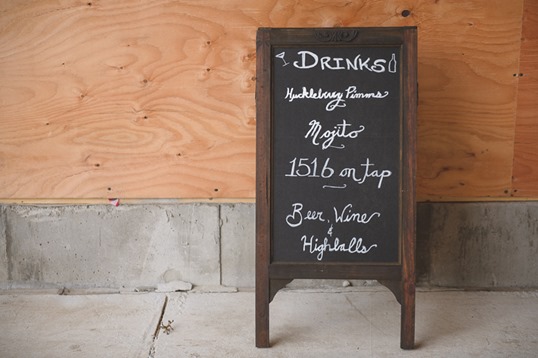 DRINKS
Huckleberry Pimms
Mojito
1516 on tap
Beer, Wine
&
Highballs